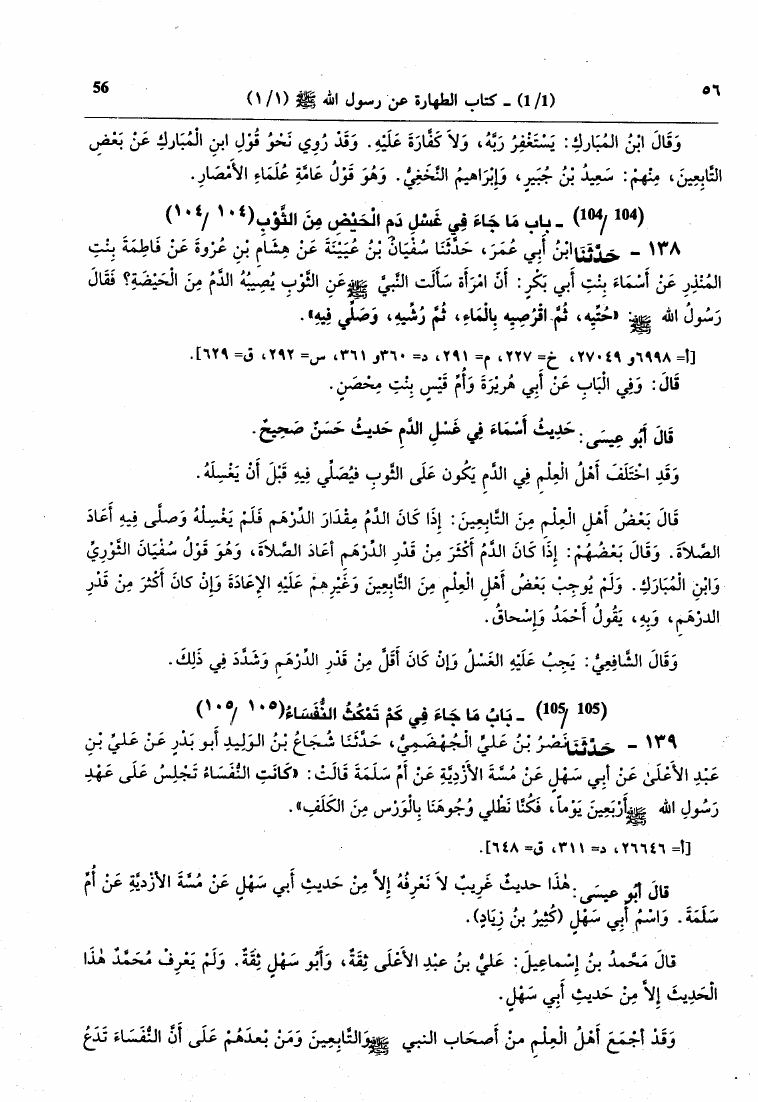 ٥٦ (1/1) - كتاب الطهارة عن رسول الله ﷺ (١/١) 56
وَقَالَ ابْنُ المُبَارِكِ: يَسْتَغْفِرُ رَبَّهُ، وَلاَ كَفَّارَةَ عَلَيْهِ. وَقَدْ رُوِي نَحْوُ قَوْلِ ابنِ الْمُبَارِكِ عَنْ بَعْضِ
التَّابِعِينَ، مِنْهُمْ: سَعِيدُ بْنُ جُبَيرٍ، وَإِبْرَاهيمُ النَّخَعِيُّ. وَهُوَ قَوْلُ عَامَّةِ عُلَمَاءِ الأَمْصَارِ.
(104/ 104) - باب مَا جَاءَ فِي غَسْلِ دَمِ الْحَيْضِ مِنَ الثَّوْبِ (١٠٤/ ١٠٤)
١٣٨ - حَدَّثَنَا ابْنُ أَبِي عُمَرَ، حَدَّثَنَا سُفْيَانُ بْنُ عُيَيْنَةَ عَنْ هِشَامِ بْنِ عُرْوةَ عَنْ فَاطِمَةَ بِنْتِ
المُنْذِرِ عَنْ أَسْمَاءَ بِنْتِ أَبي بَكْرٍ: أَنَّ امْرَأَة سَأَلَت النَّبيَّ ﷺ عَنِ الثَّوْبِ يُصِيبُهُ الدَّمُ مِنَ الْحَيْضَةِ؟ فَقَالَ
رَسُولُ الله ﷺ: «حُتِّيه، ثُمَّ اقْرُصِيهِ بِالْمَاءِ، ثُمَّ رُشِّيهِ، وَصَلِّي فِيهِ».
[أ= ٦٩٩٨و ٢٧٠٤٩، خ= ٢٢٧، م= ٢٩١، د= ٣٦٠و ٣٦١، س= ٢٩٢، ق= ٦٢٩].
قَالَ: وَفِي الْبَابِ عَنْ أَبي هُرَيْرَةَ وَأُمِّ قَيْسٍ بِنْتِ مِحْصَنٍ.
قَالَ أَبُو عِيسَى: حَدِيثُ أَسْمَاءَ فِي غَسْلِ الدَّمِ حَديثُ حَسَنٌ صَحِيحٌ.
وَقَدِ اخْتَلَفَ أَهْلُ الْعِلْمِ فِي الدَّمِ يَكُون عَلَى الثَّوبِ فَيُصَلِّي فِيهِ قَبْلَ أَنْ يَغْسِلَهُ.
قَالَ بَعْضُ أَهْلِ الْعِلْمِ مِنَ التَّابِعِينَ: إِذَا كَانَ الدَّمُ مِقْدَارَ الدِّرْهَمِ فَلَمْ يَغْسِلْهُ وَصلَّى فِيهِ أَعَادَ
الصَّلاَةَ. وَقَالَ بَعْضُهُمْ: إِذَا كَانَ الدَّمُ أَكْثَرَ مِنْ قَدْرِ الدِّرْهَمِ أعَادَ الصَّلاَةَ، وَهُوَ قَوْلُ سُفْيَانَ الثَّوْرِيِّ
وَابْنِ الْمُبَارَكِ. وَلَمْ يُوجِبْ بَعْضُ أهْلِ الْعِلْمِ مِنَ التَّابِعِينَ وَغَيْرِهِمْ عَلَيْهِ الإِعَادَةَ وَإِنْ كانَ أكْثَرَ مِنْ قَدْرِ
الدرْهَمِ، وَبِهِ، يَقُولُ أَحْمَدُ وَإِسْحاقُ.
وَقَالَ الشَّافِعِيُّ: يَجِبُ عَلَيْهِ الغَسْلُ وَإِنْ كَانَ أَقَلَّ مِنْ قَدْرِ الدِّرْهَمِ وَشَدَّدَ فِي ذَلِكَ.
(105/ 105) - بَابُ مَا جَاءَ فِي كَمْ تَمْكُثُ النُّفَسَاءُ (١٠٥/ ١٠٥)
١٣٩ - حَدَّثَنَا نَصْرُ بْنُ عَلِيٍّ الْجَهْضَمِيُّ، حَدَّثَنَا شُجَاعُ بْنُ الوَلِيدِ أَبو بَدْرٍ عَنْ عَلِيِّ بْنِ
عَبْدِ الأَعْلَى عَنْ أبي سَهْلٍ عَنْ مُسَّةَ الأَزْدِيَّةِ عَنْ أُمِّ سَلَمَةَ قَالَتْ: «كَانَتِ النُّفَسَاءُ تَجْلِسُ عَلَى عَهْدِ
رَسُولِ الله ﷺ أَرْبَعِينَ يَوْماً، فَكُنَّا نَطْلي وُجُوهَنَا بِالْوَرْسِ مِنَ الكَلَفِ».
[أ= ٢٦٦٤٦، د= ٣١١، ق= ٦٤٨].
قالَ أَبُو عيسَى: هٰذَا حديثٌ غَرِيبٌ لاَ نَعْرِفُهُ إِلاَّ مِنْ حَديثِ أبي سَهْلٍ عَنْ مُسَّةَ الأَزديَّةِ عَنْ أُمِّ
سَلَمَةَ. وَاسْمُ أَبِي سَهْلٍ (كَثِيرُ بنُ زِيَادٍ).
قالَ مُحَمدُ بنُ إِسْماعِيلَ: عَليُّ بنُ عبْدِ الأَعْلَى ثِقَةٌ، وَأَبُو سَهْلٍ ثِقَةٌ. وَلَمْ يَعْرِفْ مُحَمَّدٌ هٰذَا
الْحَدِيثَ إِلاَّ مِنْ حَديثِ أبي سَهْلٍ.
وَقَدْ أَجْمَعَ أَهْلُ الْعِلْمِ منْ أَصحَاب النبي ﷺ وَالتَّابِعِينَ وَمَنْ بَعدَهُمْ عَلَى أَنَّ النُّفَسَاءَ تَدَعُ